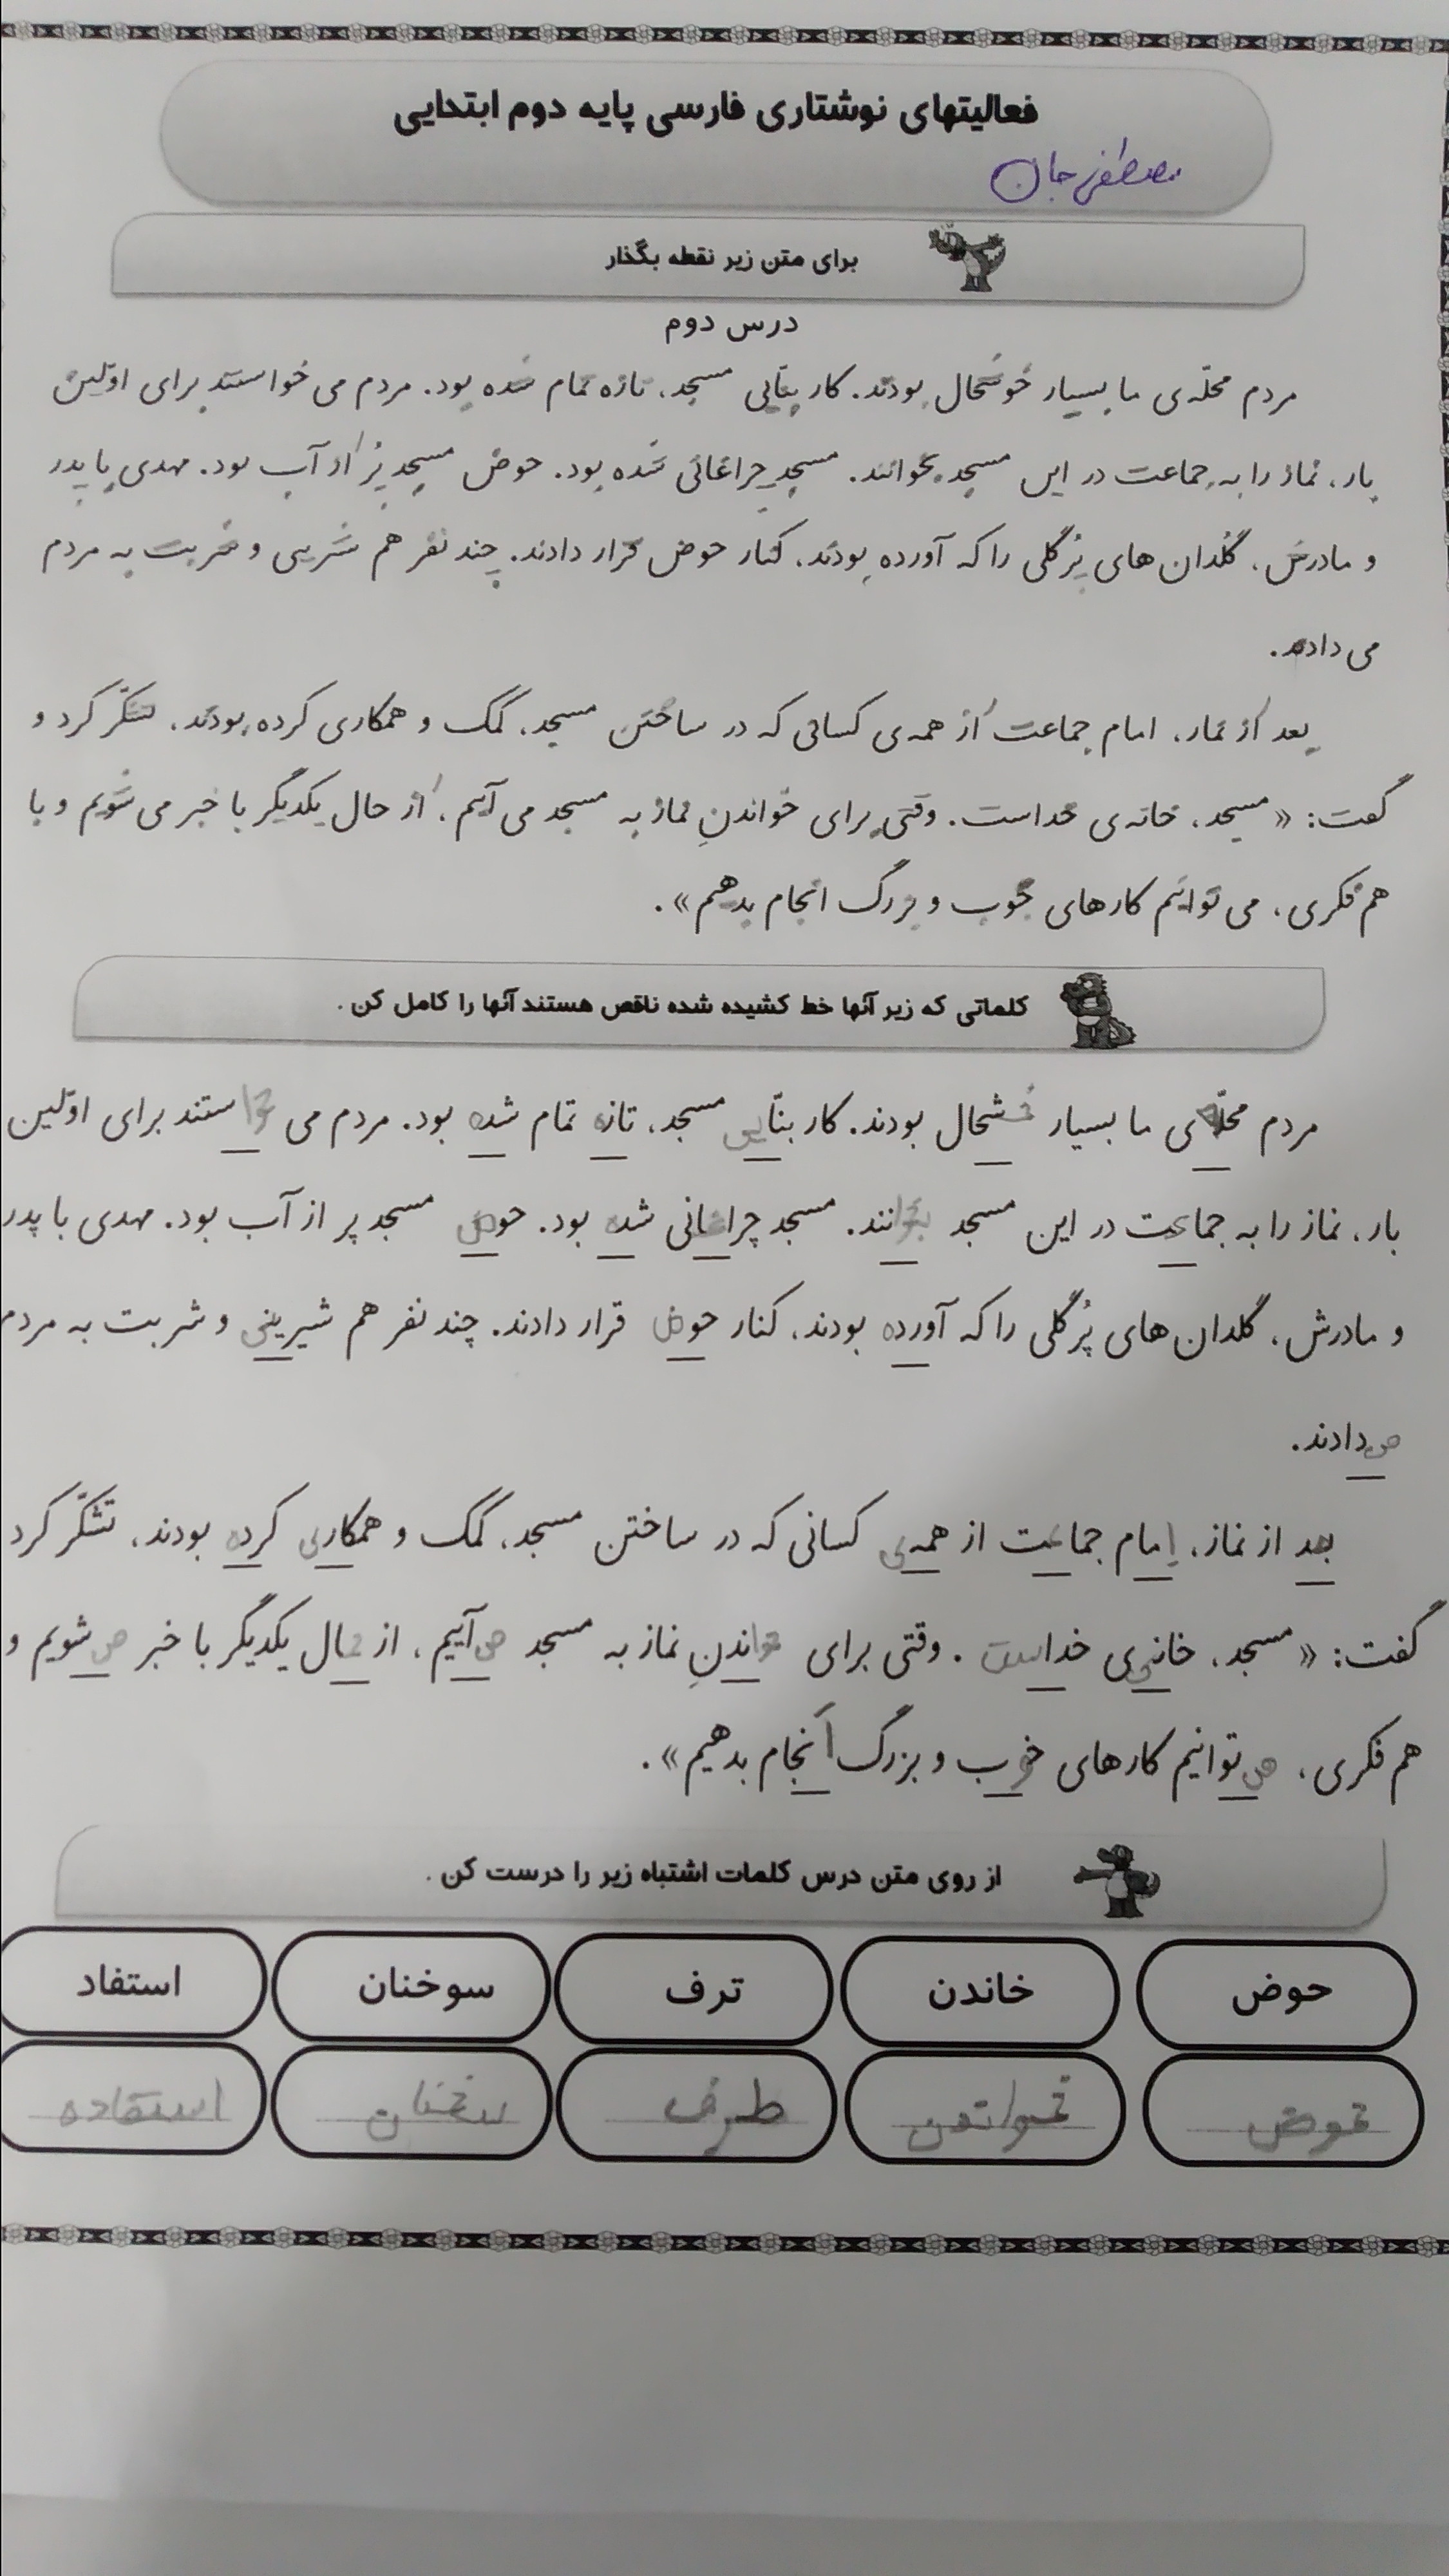 فعالیتهای نوشتاری فارسی پایه دوم ابتدایی
مصطفی جان
برای متن زیر نقطه بگذار
درس دوم
مردم محلّه‌ی ما بسیار خوشحال بودند. کار بنّایی مسجد، تازه تمام شده بود. مردم می خواستند برای اوّلین
بار، نماز را به جماعت در این مسجد بخوانند. مسجد چراغانی شده بود. حوض مسجد پُر از آب بود. مهدی با پدر
و مادرش، گلدان های پُرگلی را که آورده بودند، کنار حوض قرار دادند. چند نفر هم شربنی و شربت به مردم
می دادند.
بعد از نماز، امام جماعت از همه‌ی کسانی که در ساختن مسجد، کمک و همکاری کرده بودند، تشکّر کرد و
گفت: « مسجد، خانه‌ی خداست. وقتی برای خواندنِ نماز به مسجد می آییم، از حال یکدیگر با خبر می شویم و با
هم فکری، می توانیم کارهای خوب و بزرگ انجام بدهیم».
کلماتی که زیر آنها خط کشیده شده ناقص هستند آنها را کامل کن .
مردم محلّه‌ی ما بسیار خشحال بودند. کار بنّایی مسجد، تازه تمام شده بود. مردم می خواستند برای اوّلین
بار، نماز را به جماعت در این مسجد بخوانند. مسجد چراغانی شده بود. حوض مسجد پر از آب بود. مهدی با پدر
و مادرش، گلدان های پُرگلی را که آورده بودند، کنار حوض قرار دادند. چند نفر هم شیرینی و شربت به مردم
می دادند.
بعد از نماز، امام جماعت از همه‌ی کسانی که در ساختن مسجد، کمک و همکاری کرده بودند، تشکّر کرد
گفت: « مسجد، خانه‌ی خداست . وقتی برای خواندنِ نماز به مسجد می آییم، از حال یکدیگر با خبر می شویم و
هم فکری، می توانیم کارهای خوب و بزرگ انجام بدهیم».
از روی متن درس کلمات اشتباه زیر را درست کن .
حوض خاندن ترف سوخنان استفاد
خوض خواندن طرف سخنان استفاده